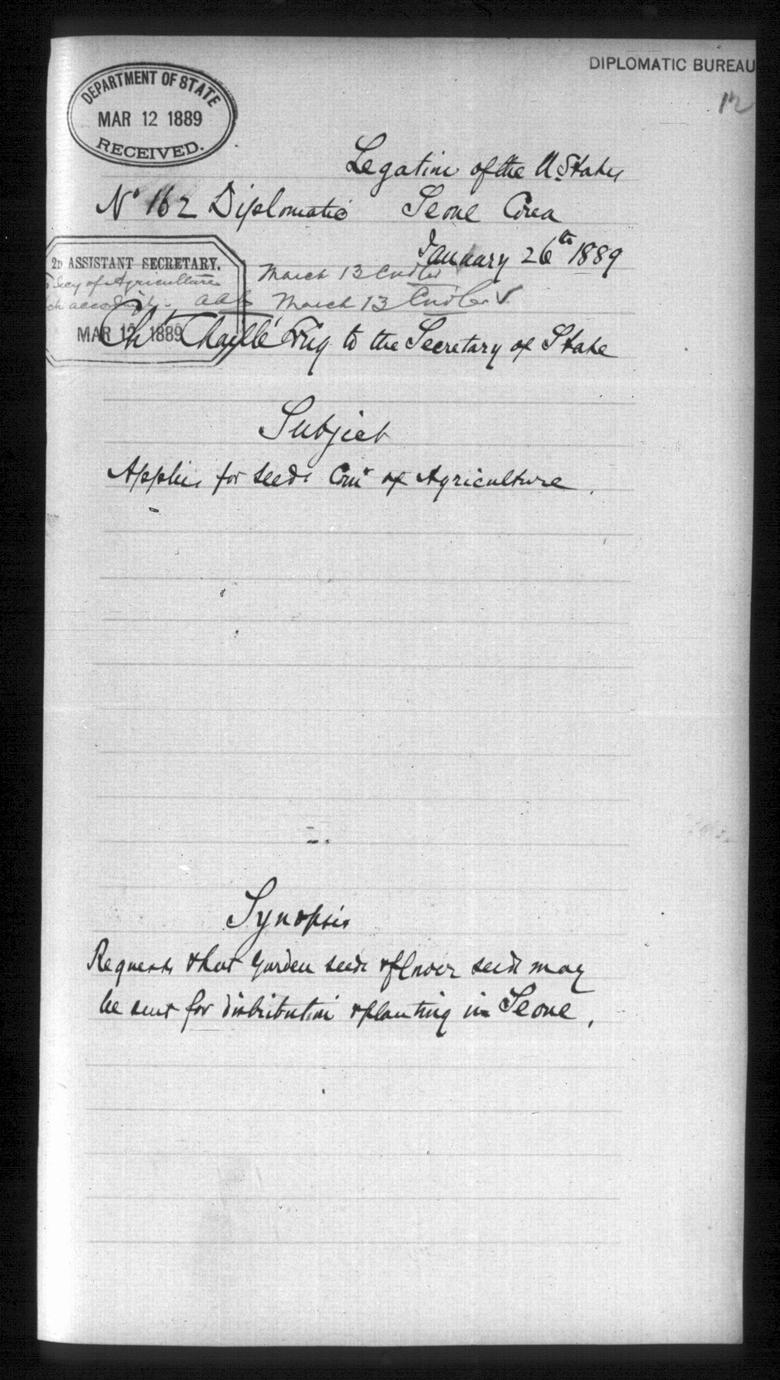 DIPLOMATIC BUREAU
DEPARTMENT OF STATE
MAR 12 1889
RECEIVED.
Legation of the U. States
No 162 Diplomatic Seoul Corea
January 26th 1889
2D ASSISTANT SECRETARY.
March 13
Secy of Agriculture
March 13
MAR 12 1889
Ch Chaillé Long to the Secretary of State
Subject
Applies for seeds Comr of Agriculture.
Synopsis
Requests that garden seeds & flower seeds may
be sent for distribution & planting in Seoul.